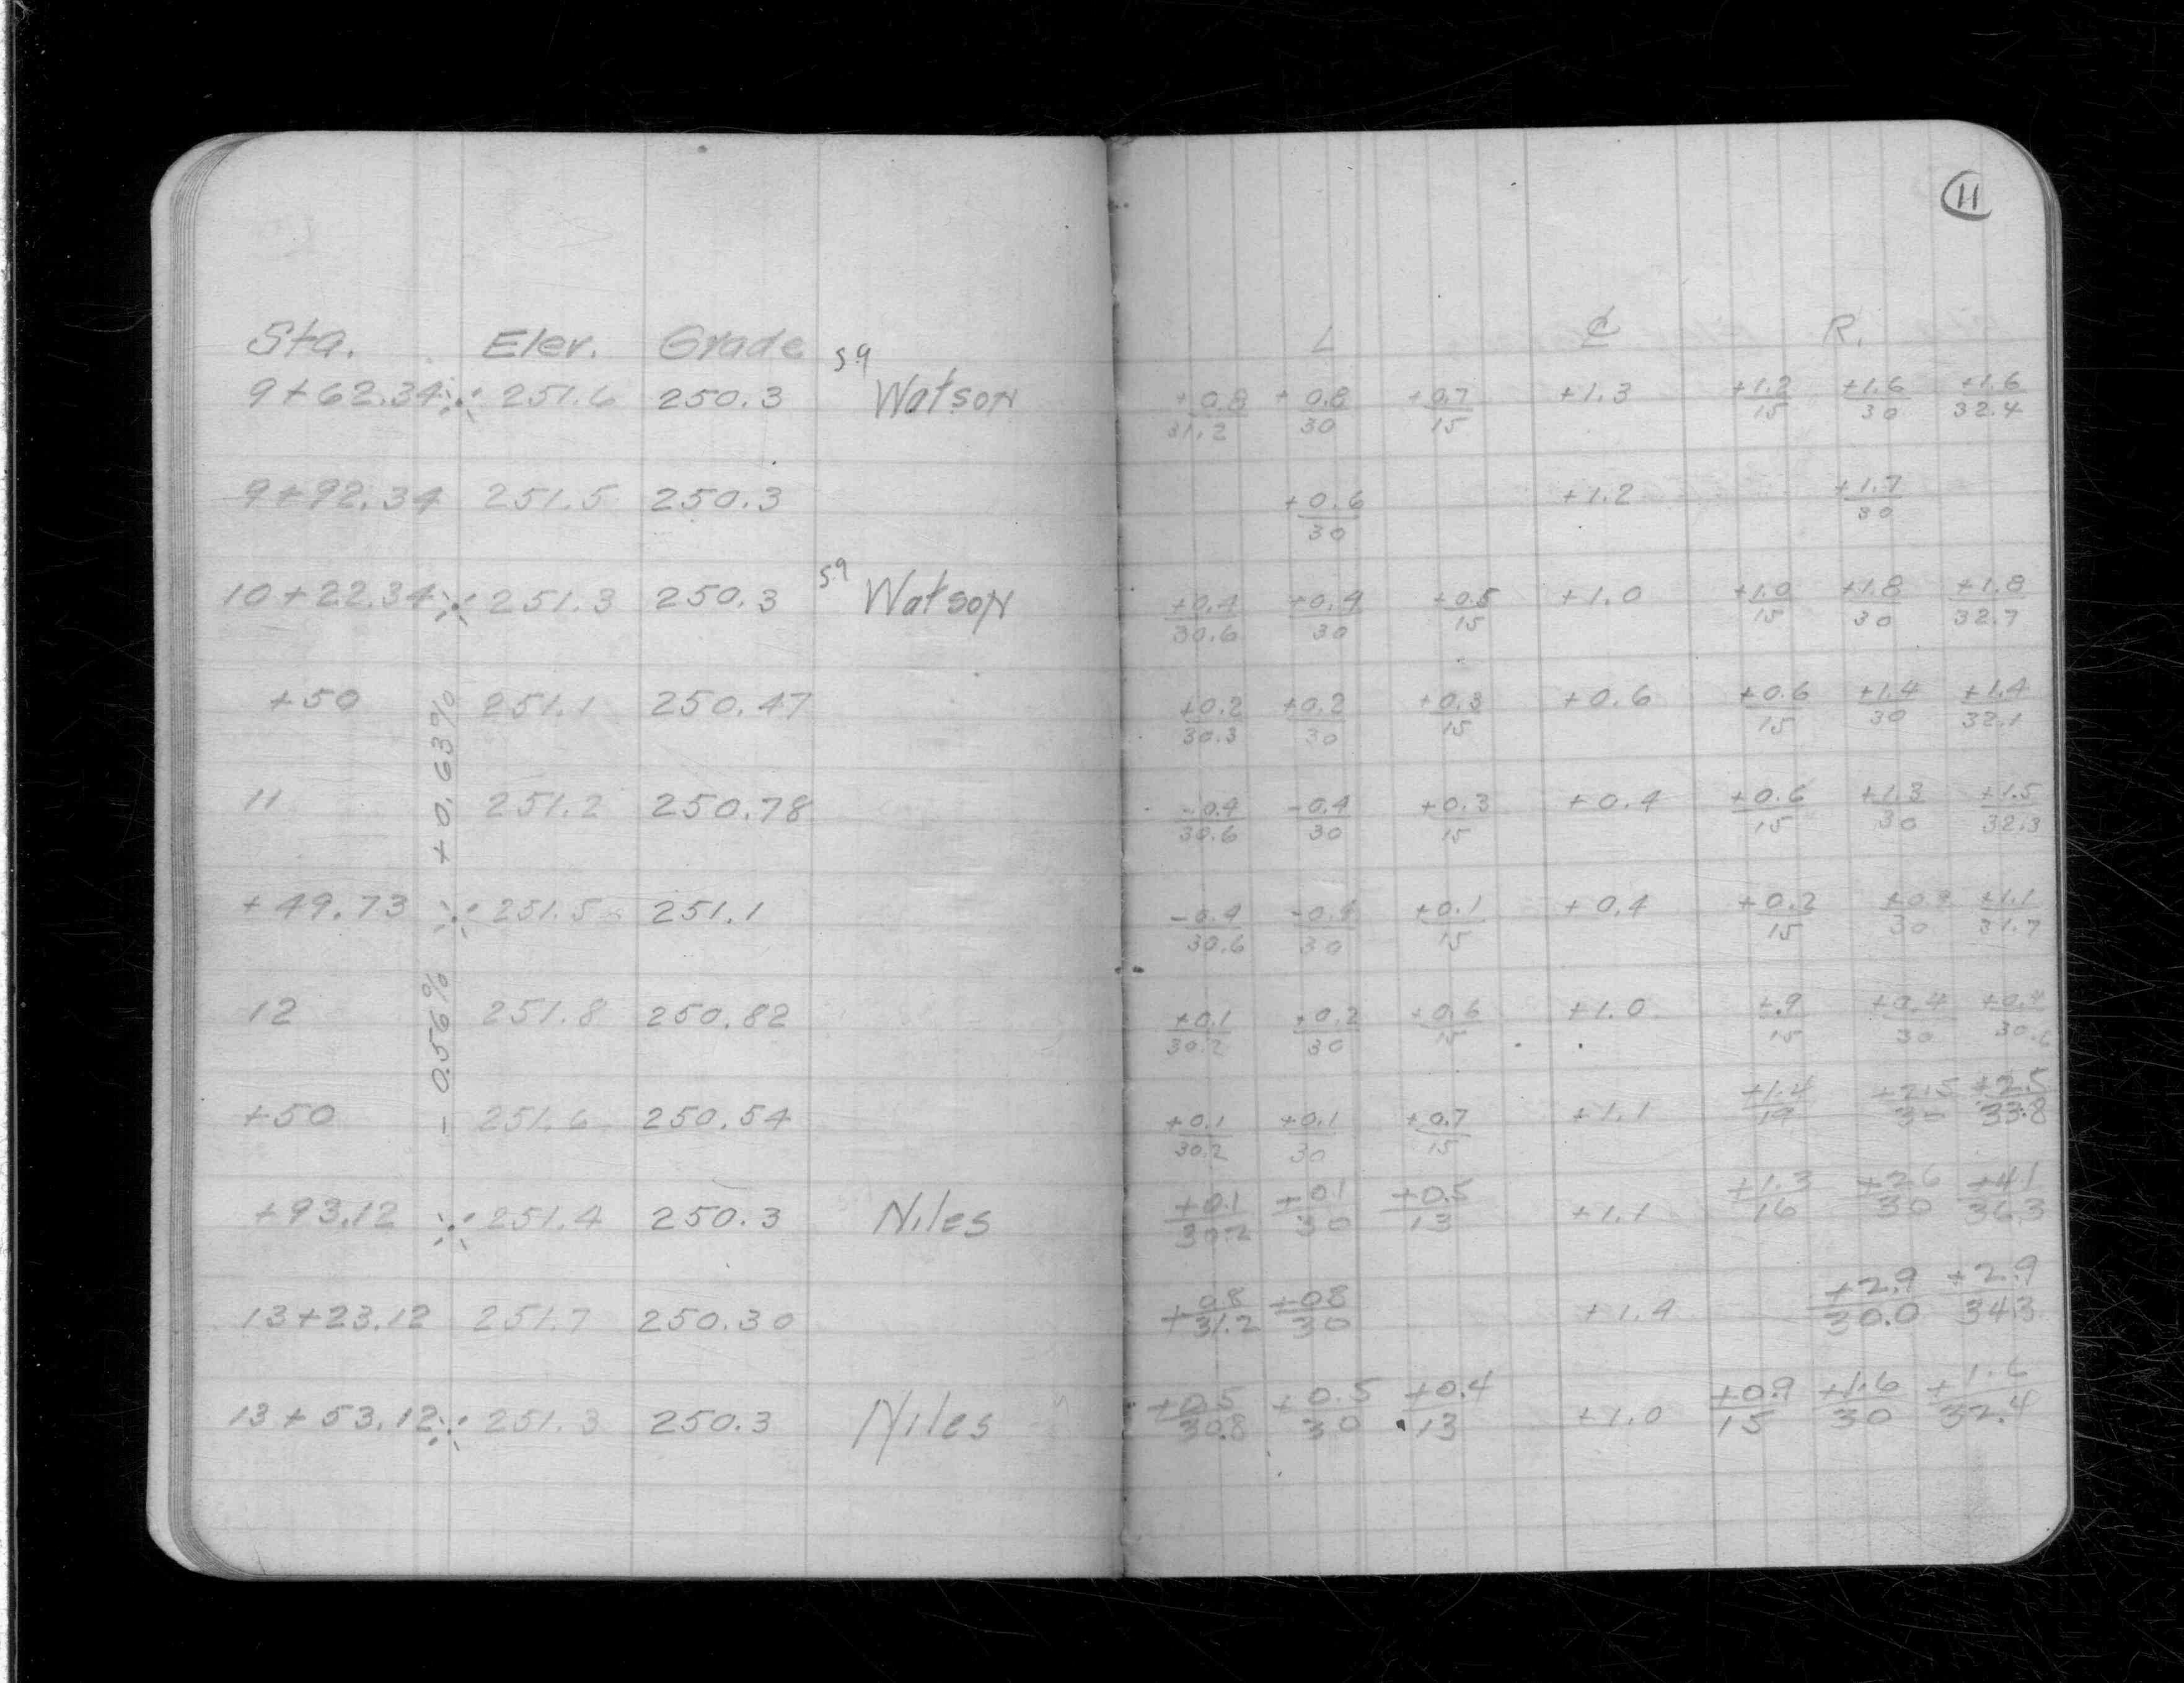 11
Sta. Elev. Grade L ₵ R.
9+62.34 251.6 250.3 59 Watson +0.8/31.2 +0.8/30 +0.7/15 +1.3 +1.2/15 +1.6/30 +1.6/32.4
9+92.34 251.5 250.3 +0.6/30 +1.2 +1.7/30
10+22.34 251.3 250.3 59 Watson +0.4/30.6 +0.4/30 +0.5/15 +1.0 +1.0/15 +1.8/30 +1.8/32.7
+50 251.1 250.47 +0.2/30.3 +0.2/30 +0.3/15 +0.6 +0.6/15 +1.4/30 +1.4/32.1
+0.63%
11 251.2 250.78 -0.4/30.6 -0.4/30 +0.3/15 +0.4 +0.6/15 +1.3/30 +1.5/32.3
+49.73 251.5 251.1 -0.4/30.6 -0.4/30 +0.1/15 +0.4 +0.2/15 /30 +1.1/31.7
- 0.56%
12 251.8 250.82 +0.1/30.2 +0.2/30 +0.6/15 +1.0 +.9/15 +0.4/30 +0.4/30.6
+50 251.6 250.54 +0.1/30.2 +0.1/30 +0.7/15 +1.1 +1.4/19 +2.5/30 +2.5/33.8
+93.12 251.4 250.3 Niles +0.1/30.2 +0.1/30 +0.5/13 +1.1 +1.3/16 +2.6/30 +4.1/36.3
13+23.12 251.7 250.30 +0.8/31.2 +0.8/30 +1.4 +2.9/30.0 +2.9/34.3
13+53.12 251.3 250.3 Niles +0.5/30.8 +0.5/30 +0.4/13 +1.0 +0.9/15 +1.6/30 +1.6/32.4